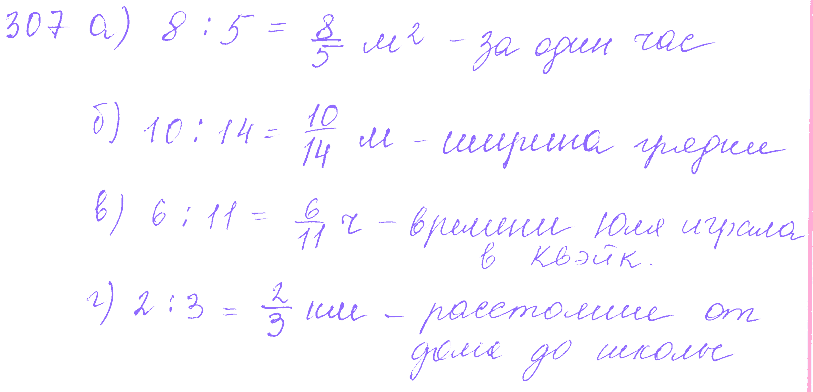 307 а) 8 : 5 = 8/5 м² - за один час
б) 10 : 14 = 10/14 м - ширина грядки
в) 6 : 11 = 6/11 ч - времени Юля играла
в Квэйк.
г) 2 : 3 = 2/3 км - расстояние от
дома до школы